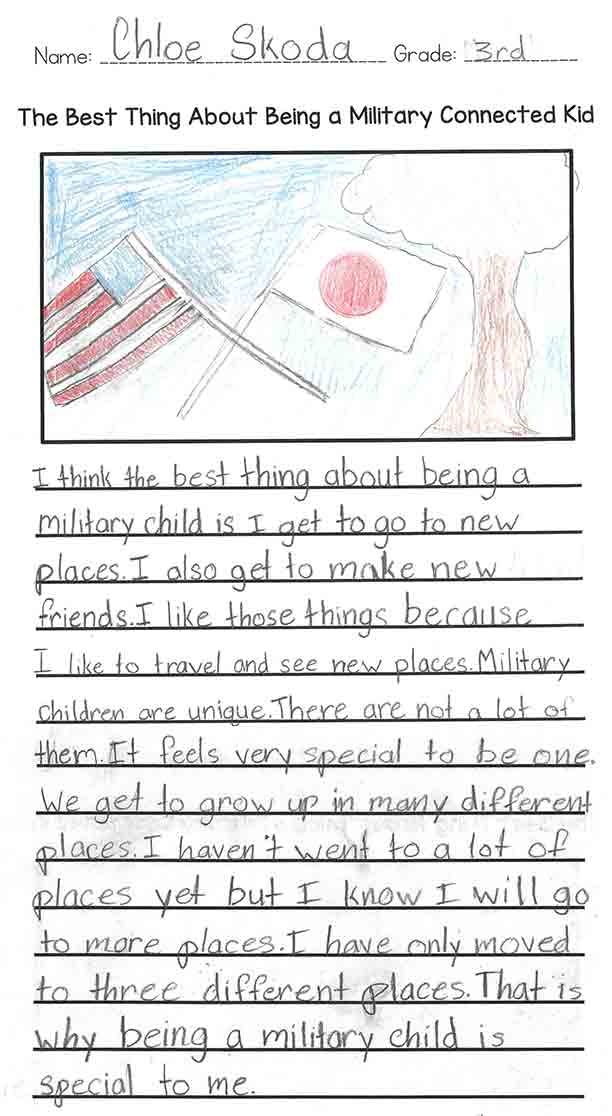 Name: Chloe Skoda Grade: 3rd
The Best Thing About Being a Military Connected Kid
I think the best thing about being a
military child is I get to go to new
places. I also get to make new
friends. I like those things because
I like to travel and see new places. Military
children are unique. There are not a lot of
them. It feels very special to be one.
We get to grow up in many different
places. I haven't went to a lot of
places yet but I know I will go
to more places. I have only moved
to three different places. That is
why being a military child is
special to me.